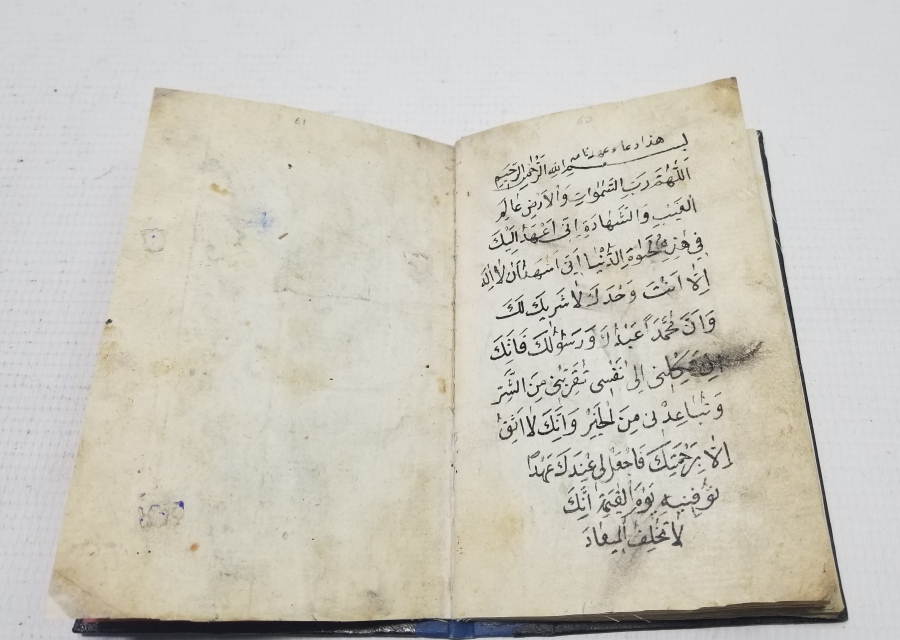 هذا دعاء عهدنامه
بسم الله الرحمن الرحيم
اَللّٰهُمَّ رَبَّ السَّمٰوَاتِ وَالْاَرْضِ عَالِمَ
الْغَيْبِ وَالشَّهَادَةِ اِنّى اَعْهَدُ اِلَيْكَ
فِى هٰذِهِ الْحَيٰوةِ الدُّنْيَا اِنّى اَشْهَدُ اَنْ لَا اِلٰهَ
اِلَّا اَنْتَ وَحْدَكَ لَا شَرِيكَ لَكَ
وَاَنَّ مُحَمَّدًا عَبْدُكَ وَرَسُولُكَ فَاِنَّكَ
اِنْ تَكِلْنِى اِلٰى نَفْسِى تُقَرِّبْنِى مِنَ الشَّرِّ
وَتُبَاعِدْنِى مِنَ الْخَيْرِ وَاِنِّكَ لَا اَثِقُ
اِلَّا بِرَحْمَتِكَ فَاجْعَلْ لِى عِنْدَكَ عَهْدًا
تُوَفِّنِيهِ يَوْمَ الْقِيٰمَةِ اِنَّكَ
لَا تُخْلِفُ الْمِيعَادَ